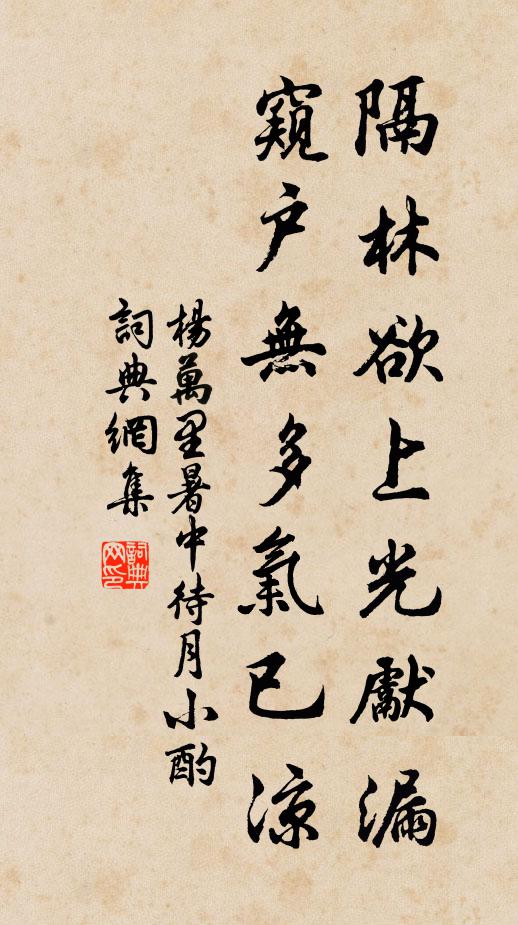 隔林欲上光獻漏
窺户無多氣已涼
楊萬里暑中待月小酌
詞典網集
詞典网印